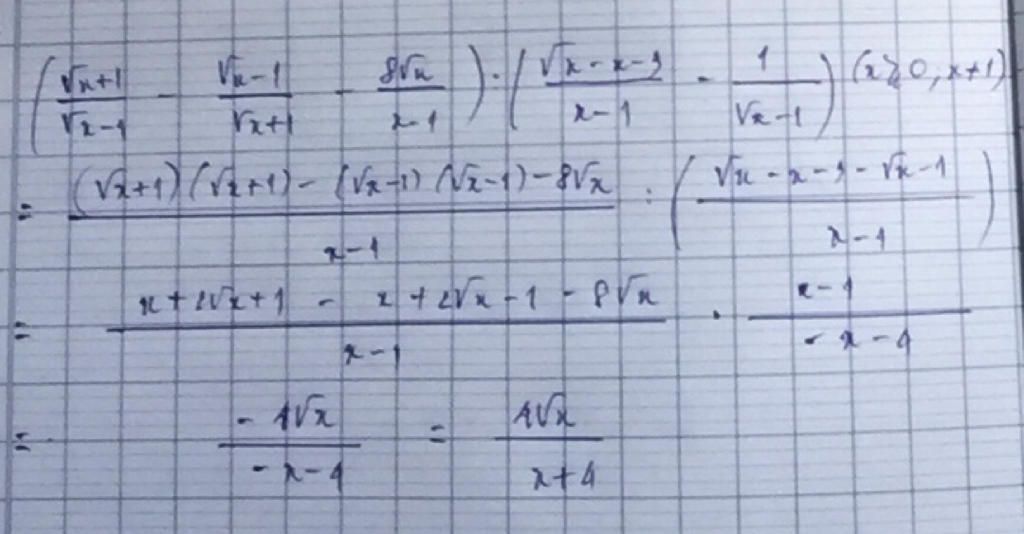 (√x+1/√x-1 - √x-1/√x+1 - 8√x/x-1) : (√x-x-3/x-1 - 1/√x-1) (x≥0, x≠1)
= (√x+1)(√x+1) - (√x-1)(√x-1) - 8√x/x-1 : (√x-x-3-√x-1/x-1)
= x+2√x+1 - x+2√x-1 - 8√x/x-1 · x-1/-x-4
= -4√x/-x-4 = 4√x/x+4